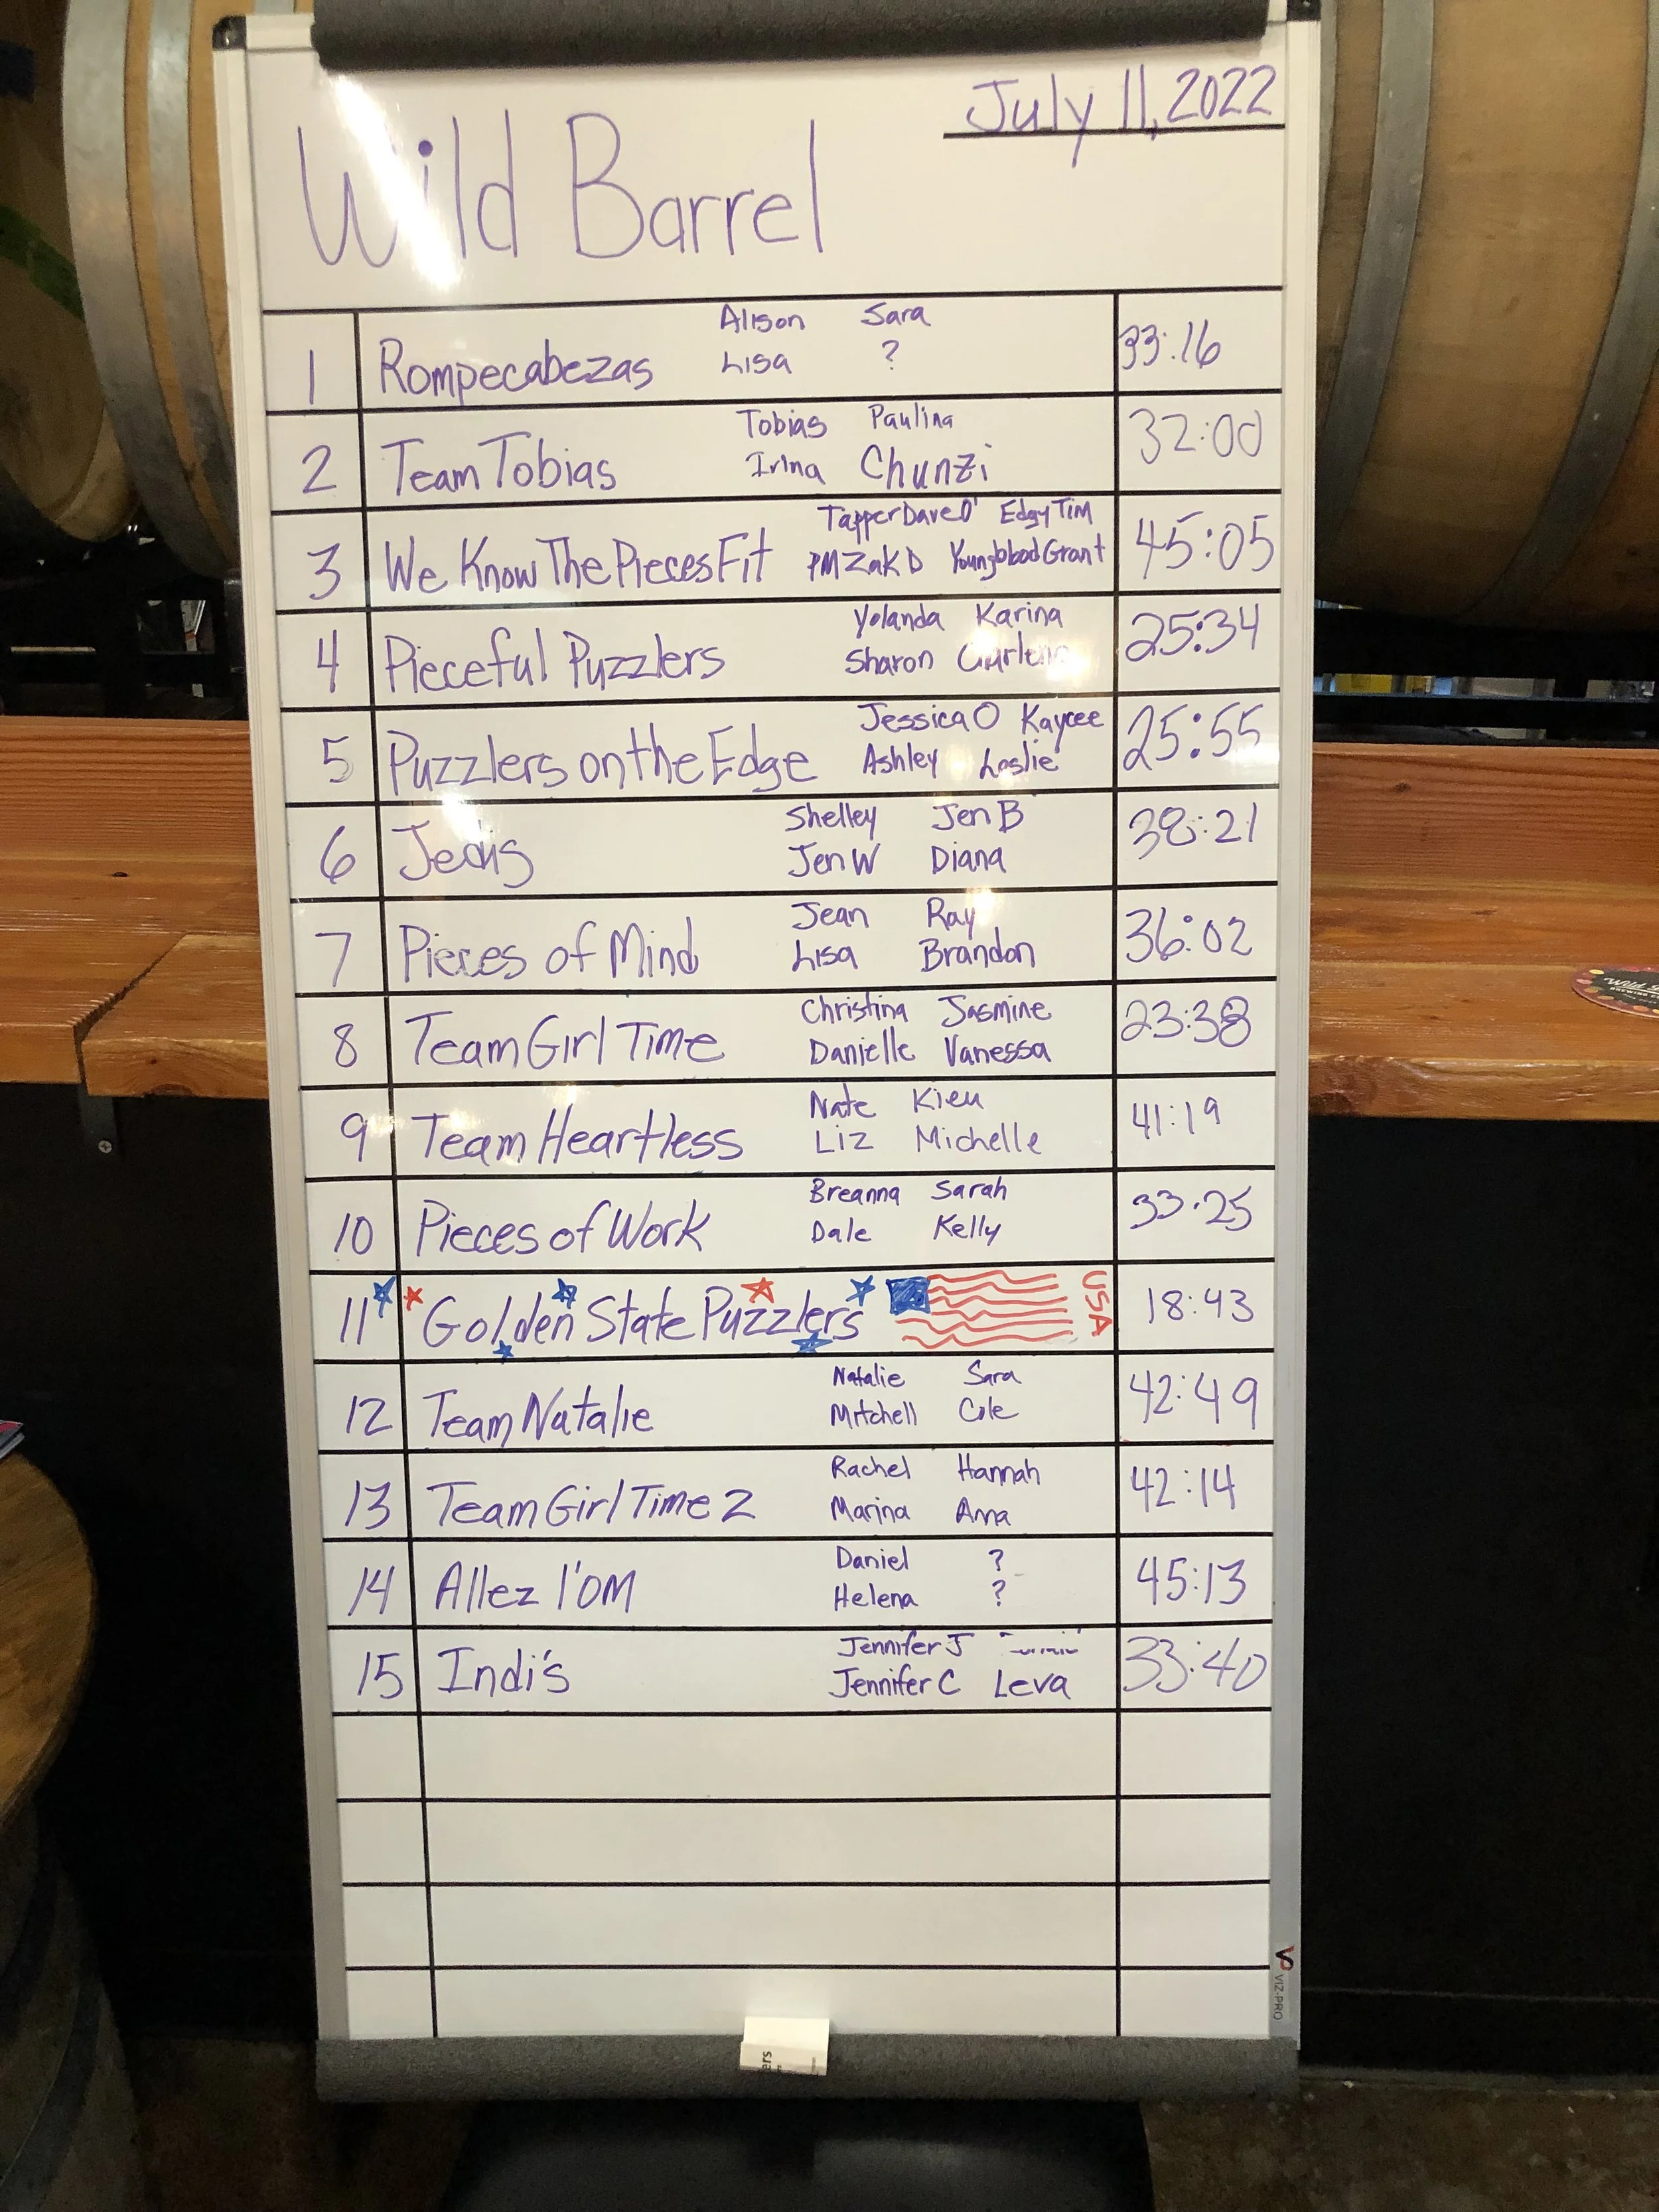 July 11, 2022
Wild Barrel
1 Rompecabezas Alison Sara 33:16
Lisa ?
2 Team Tobias Tobias Paulina 32:00
Irina Chunzi
3 We Know The Pieces Fit Tapper Dave O' Edgy Tim 45:05
PM Zak D Youngblood Grant
4 Pieceful Puzzlers Yolanda Karina 25:34
Sharon
5 Puzzlers on the Edge Jessica O Kaycee 25:55
Ashley Leslie
6 Jedis Shelley Jen B 38:21
Jen W Diana
7 Pieces of Mind Jean Ray 36:02
Lisa Brandon
8 Team Girl Time Christina Jasmine 23:38
Danielle Vanessa
9 Team Heartless Nate Kieu 41:19
Liz Michelle
10 Pieces of Work Breanna Sarah 33:25
Dale Kelly
11 Golden State Puzzlers USA 18:43
12 Team Natalie Natalie Sara 42:49
Mitchell Cole
13 Team Girl Time 2 Rachel Hannah 42:14
Marina Anna
14 Allez l'OM Daniel ? 45:13
Helena ?
15 Indi's Jennifer J 33:40
Jennifer C Leva
VIZ-PRO
ers